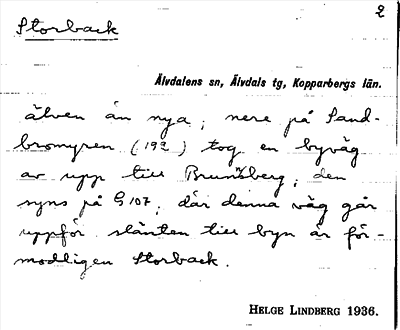 2
Storback
Älvdalens sn, Älvdals tg, Kopparbergs län.
älven än nya, nere på Sand-
bromyren (192) tog en byväg
av upp till Brunnsberg, den
syns på G 107, där denna väg går
uppför slänten till byn är för-
modligen Storback.
HELGE LINDBERG 1936.